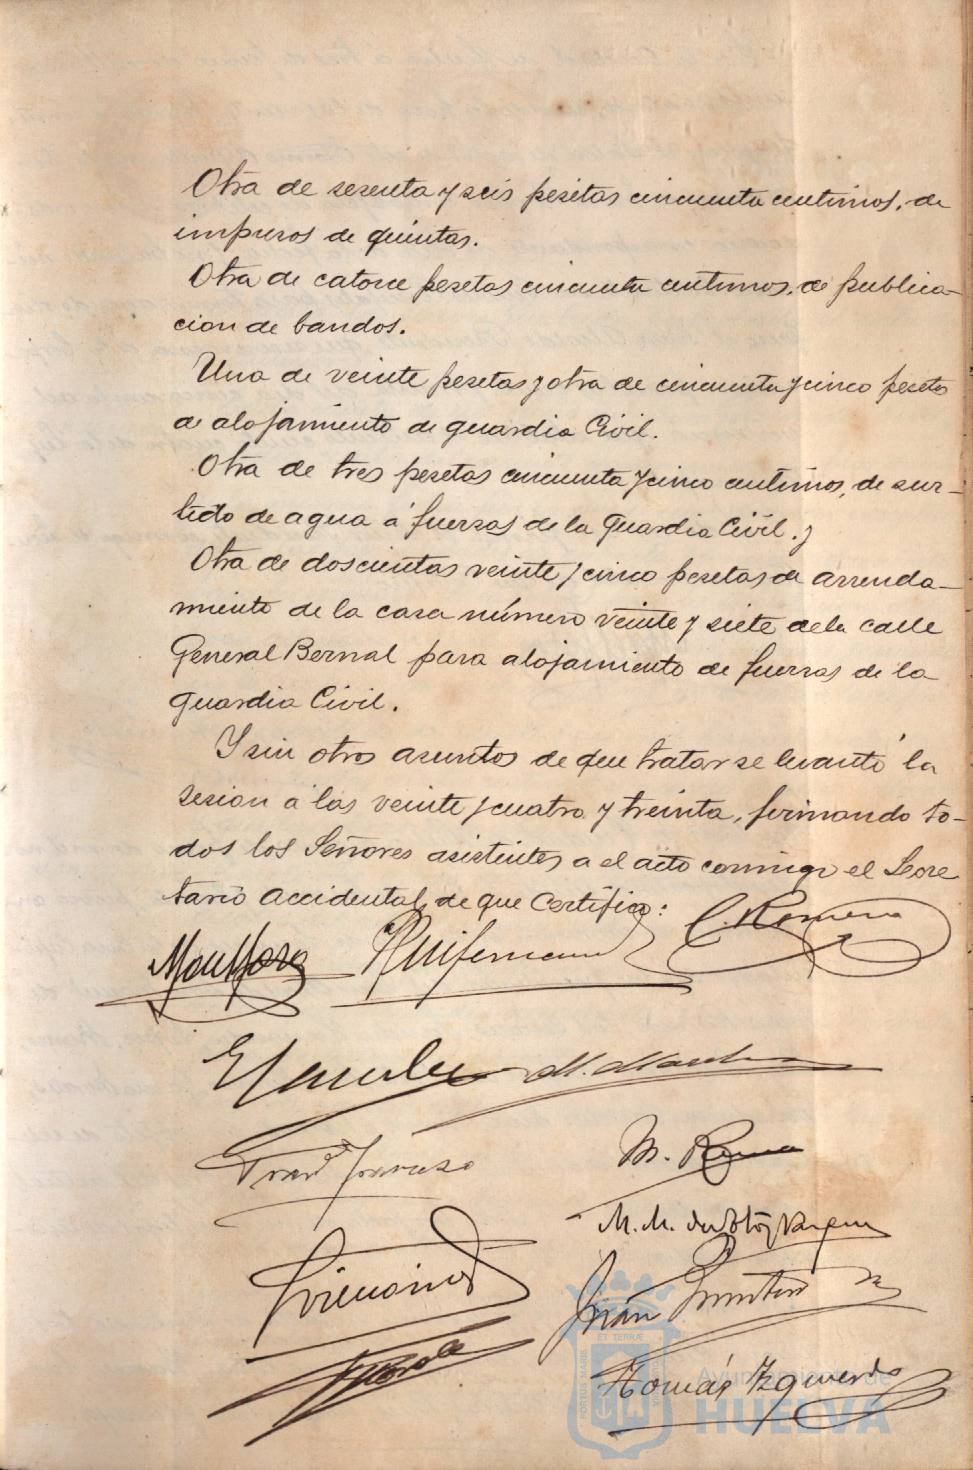 Otra de sesenta y seis pesetas cincuenta centimos, de
impresos de quintas.
Otra de catorce pesetas cincuenta centimos, de publica-
cion de bandos.
Una de veinte pesetas y otra de cincuenta y cinco pesetas
de alojamiento de guardia Civil.
Otra de tres pesetas cincuenta y cinco centimos, de sur-
tido de agua á fuerzas de la Guardia Civil. y
Otra de doscientas veinte y cinco pesetas de arrenda-
miento de la casa número veinte y siete de la calle
General Bernal para alojamiento de fuerzas de la
Guardia Civil.
Y sin otros asuntos de que tratar se levantó la
sesion á las veinte y cuatro y treinta, firmando to-
dos los Señores asistentes a el acto conmigo el Secre
tario Accidental, de que Certifico:
C. Romero
M.
M. M. de
Tomás Izquierdo
PORTUS MARIS ET TERRAE CUSTODIA
Ayuntamiento de
HUELVA